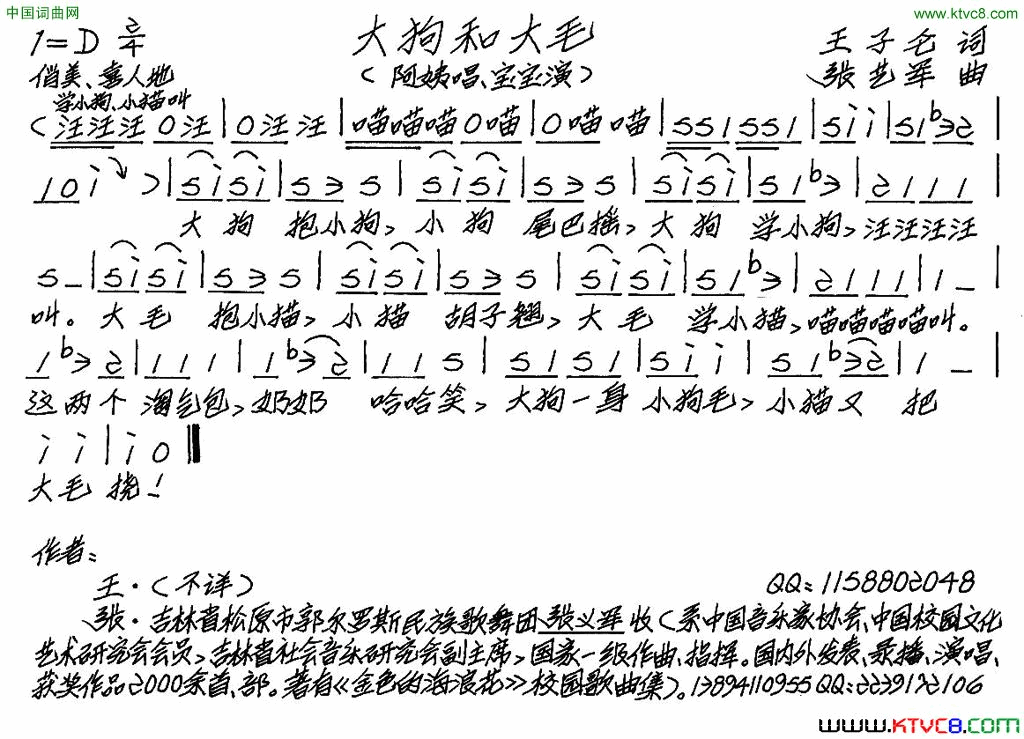 中国词曲网
www.ktvc8.com
1=D 2/4
大狗和大毛
王子仑 词
俏美、喜人地
(阿姨唱、宝宝演)
张艺军 曲
学小狗、小猫叫
(汪汪汪 0汪|0汪 汪|喵喵喵0喵|0喵 喵|551 551|5i i|51 b3 2|
1 0 i )|5i5i|5 3 5|5i5i|5 3 5|5i5i|51 b3|2 1 1 1|
大 狗 抱小狗,小 狗 尾巴摇,大 狗 学小狗,汪汪汪汪
5 –|5i5i|5 3 5|5i5i|5 3 5|5i5i|51 b3|2 1 1 1|1 –|
叫。大 毛 抱小猫,小 猫 胡子翘,大 毛 学小猫,喵喵喵喵叫。
1 b3 2|1 1 1|1 b3 2|1 1 5|5 1 5 1|5 i i|5 1 b3 2|1 –|
这两个 淘气包,奶奶 哈哈笑,大狗一身 小狗毛,小猫又 把
i i|i 0‖
大毛 挠!
作者:
王·(不详)
QQ:1158802048
张·吉林省松原市郭尔罗斯民族歌舞团张义军收(系中国音乐家协会、中国校园文化
艺术研究会会员,吉林省社会音乐研究会副主席,国家一级作曲、指挥。国内外发表、录播、演唱、
获奖作品2000余首、部。著有《金色的海浪花》校园歌曲集)。13894110955 QQ:2239172106
www.KTVC8.com